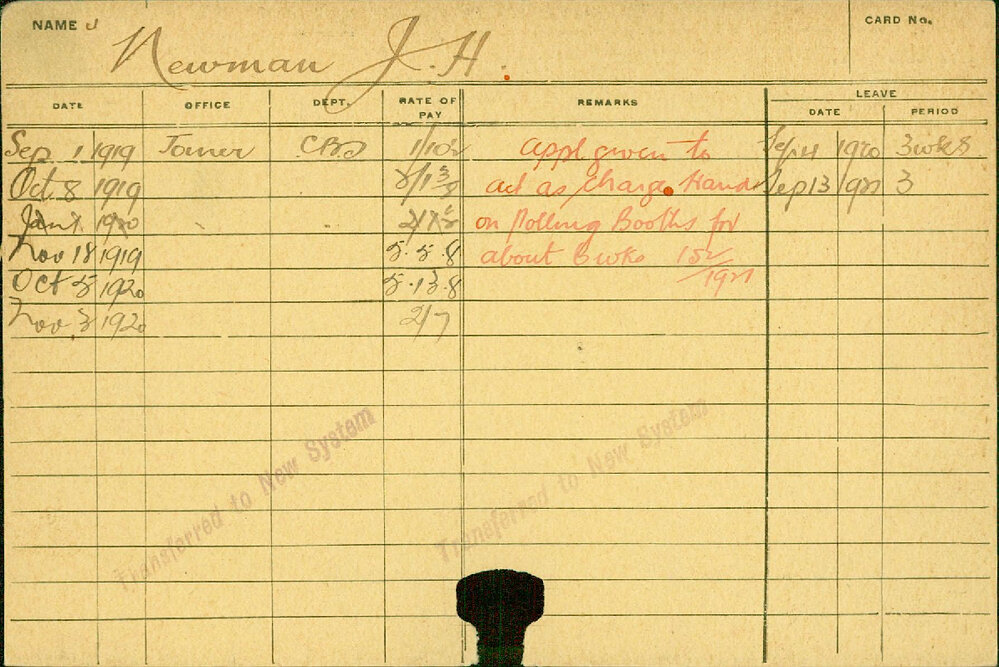 NAME
Newman J. H.
CARD No.
DATE OFFICE DEPT. RATE OF PAY REMARKS LEAVE DATE PERIOD
Sep 1 1919 Joiner 1/10½ appl given to 1920 3 wks
Oct 8 1919 act as Charge Hand Sep 13 3
Jan 1 1920 on Polling Booths for
Nov 18 1919 5.5.8 about 3 wks
Oct 5 1920 5.13.8
Nov 3 1920 2/7
Transferred to New System
Transferred to New System